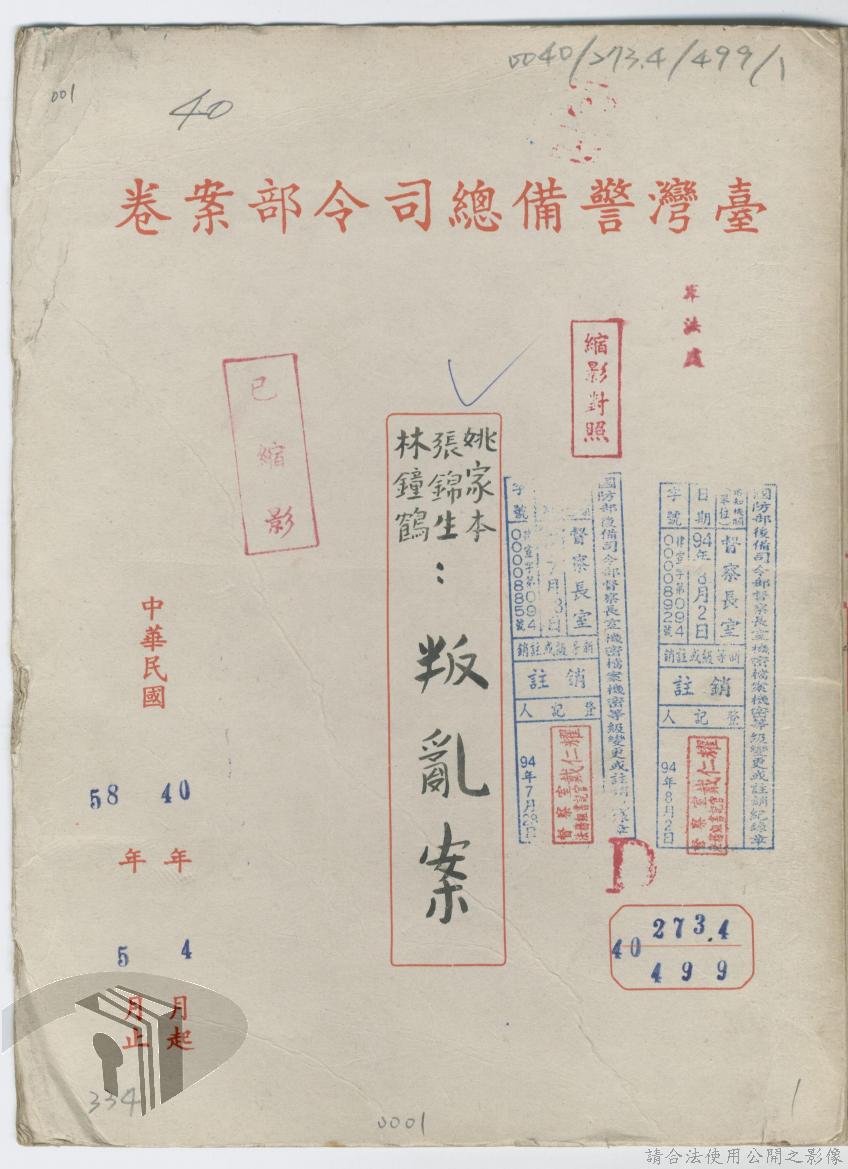 0040/273.4/499/1
001
40
臺灣警備總司令部案卷
軍法處
縮影對照
已縮影
姚家本
張錦生
林鐘鶴
:叛亂案
國防部後備司令部督察長室機密檔案機密等級變更或註銷紀錄章
督察長室
日期
94年8月2日
字號
律宣字第094
0000892號
新等級或註銷
註銷
登記人
督察室
法務組書記官戴仁耀
94年8月2日
國防部後備司令部督察長室機密檔案機密等級變更或註銷
督察長室
字號
律宣字第094
0000885號
新等級或註銷
註銷
登記人
督察室
法務組書記官戴仁耀
94年7月28日
D
40
273.4
499
中華民國
40年4月起
58年5月止
334
0001
1
請合法使用公開之影像